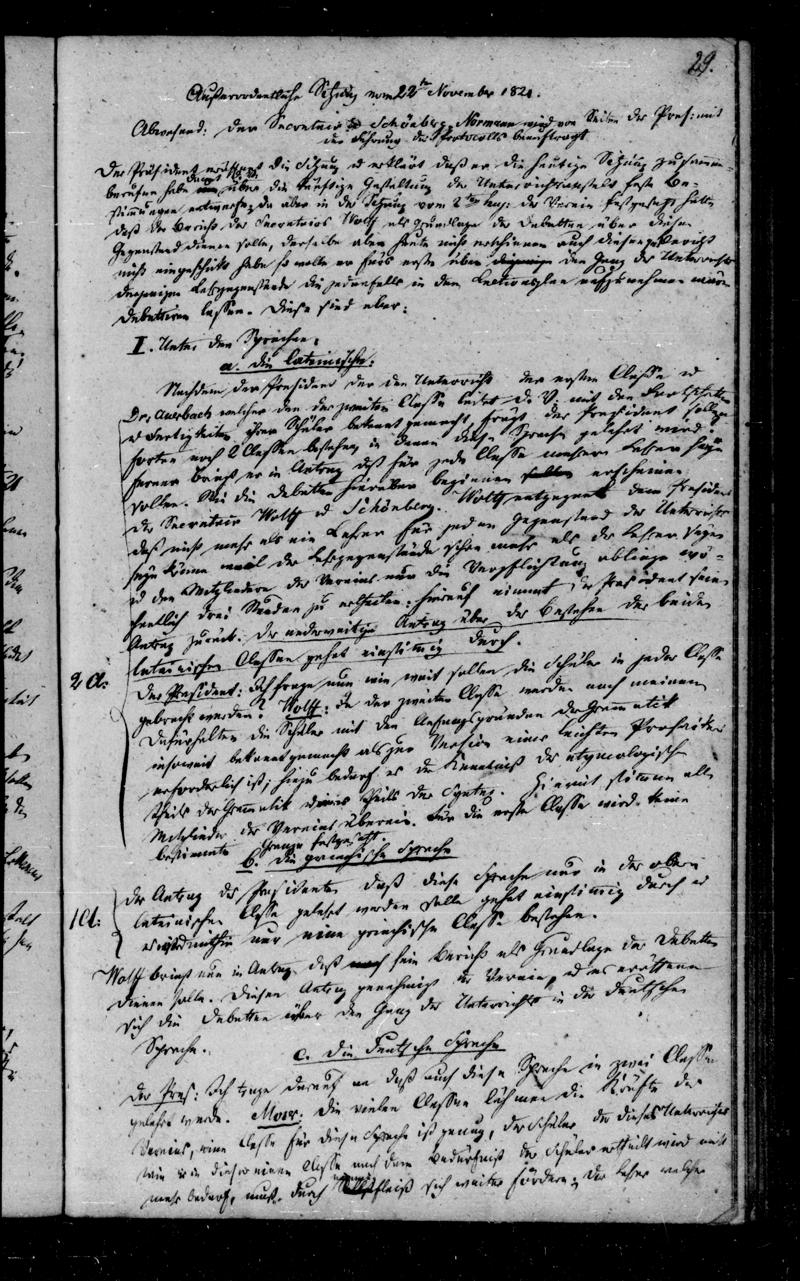 29.
Außerordentliche Sitzung vom 22ten November 1821.
Abwesend: der Secretair Schönberg. Normann wird von Seiten des Pres: mit
der Führung des Protocolls beauftragt
Der Präsident eröffnet die Sitzung u erklärt daß er die heutige Sitzung zusammen-
berufen habe über die künftige Gestaltung der Unterrichtsanstalt feste Be-
stimmungen entwerfe; da aber in der Sitzung vom der Verein festgesetzt hatte
daß der Bericht des Secretairs Wolff als Grundlage der Debatten über diesen
Gegenstand dienen solle, derselbe aber heute nicht erschienen auch diesen Bericht
nicht eingeschickt habe so wolle er fürs erste über den Gang des Unterrichts
derjenigen Lehrgegenstände die jedenfalls in den Lectionsplan aufzunehmen wären
debattiren lassen. Diese sind aber:
I. Unter den Sprachen:
a. die lateinische:
Nachdem der Präsident der den Unterricht der ersten Classe u
Dr. Auerbach welcher den der zweiten Classe leitet d. V. mit den Fortschritten
u Fertigkeiten ihrer Schüler bekannt gemacht, frägt der Präsident sollen
noch 2 Classen bestehen, in denen diese Sprache gelehrt wird?
ferner bringt er in Antrag daß für jede Classe mehrere Lehrer seyn
sollen. Als die Debatten hierüber beginnen erscheinen
der Secretair Wolff u Schönberg. Wolff entgegnet dem Präsidenten
daß nicht mehr als ein Lehrer für jeden Gegenstand des Unterrichts
seyn könne weil der Lehrgegenstände schon mehr als der Lehrer seyen
u den Mitgliedern des Vereins nur die Verpflichtung obliege wö-
chentlich drei Stunden zu ertheilen: hierauf nimmt der Präsident seinen
Antrag zurück. Der anderweitige Antrag über das Bestehen der beiden
lateinischen Classen gehet einstimmig durch.
2 Cl: Der Präsident: Ich frage nun wie weit sollen die Schüler in jeder Classe
gebracht werden? Wolff: In der zweiten Classe werden nach meinem
Dafürhalten die Schüler mit den Anfangsgründen der Grammatik
insoweit bekannt gemacht als zur Version eines leichten Prosaikers
erforderlich ist; hiezu bedarf es der Kenntniß des etymologischen
Theils der Grammatik u eines Theils der Syntax. Hiermit stimmen alle
Mitglieder des Vereins überein. Für die erste Classe wird keine
bestimmte Grenze festgesetzt.
b. Die griechische Sprache
1 Cl: Der Antrag des Präsidenten daß diese Sprache nur in der obern
lateinischen Classe gelehrt werden solle gehet einstimmig durch u
es wird mithin nur eine griechische Classe bestehen.
Wolff bringt nun in Antrag daß sein Bericht als Grundlage der Debatten
dienen solle. Diesen Antrag genehmigt der Verein, u es eröffnen
sich die Debatten über den Gang des Unterrichts in der deutschen
Sprache.
c. Die deutsche Sprache
Der Pres: Ich trage darauf an daß auch diese Sprache in zwei Classen
gelehrt werde. Moser: Die vielen Classen lähmen die Kräfte des
Vereins, eine Classe für diese Sprache ist genug, der Schüler der dieses Unterrichts
wie er in dieser einen Classe nach dem Bedürfniß der Schüler ertheilt wird nicht
mehr bedarf, muß durch fleiß sich weiter fördern; der Lehrer welcher